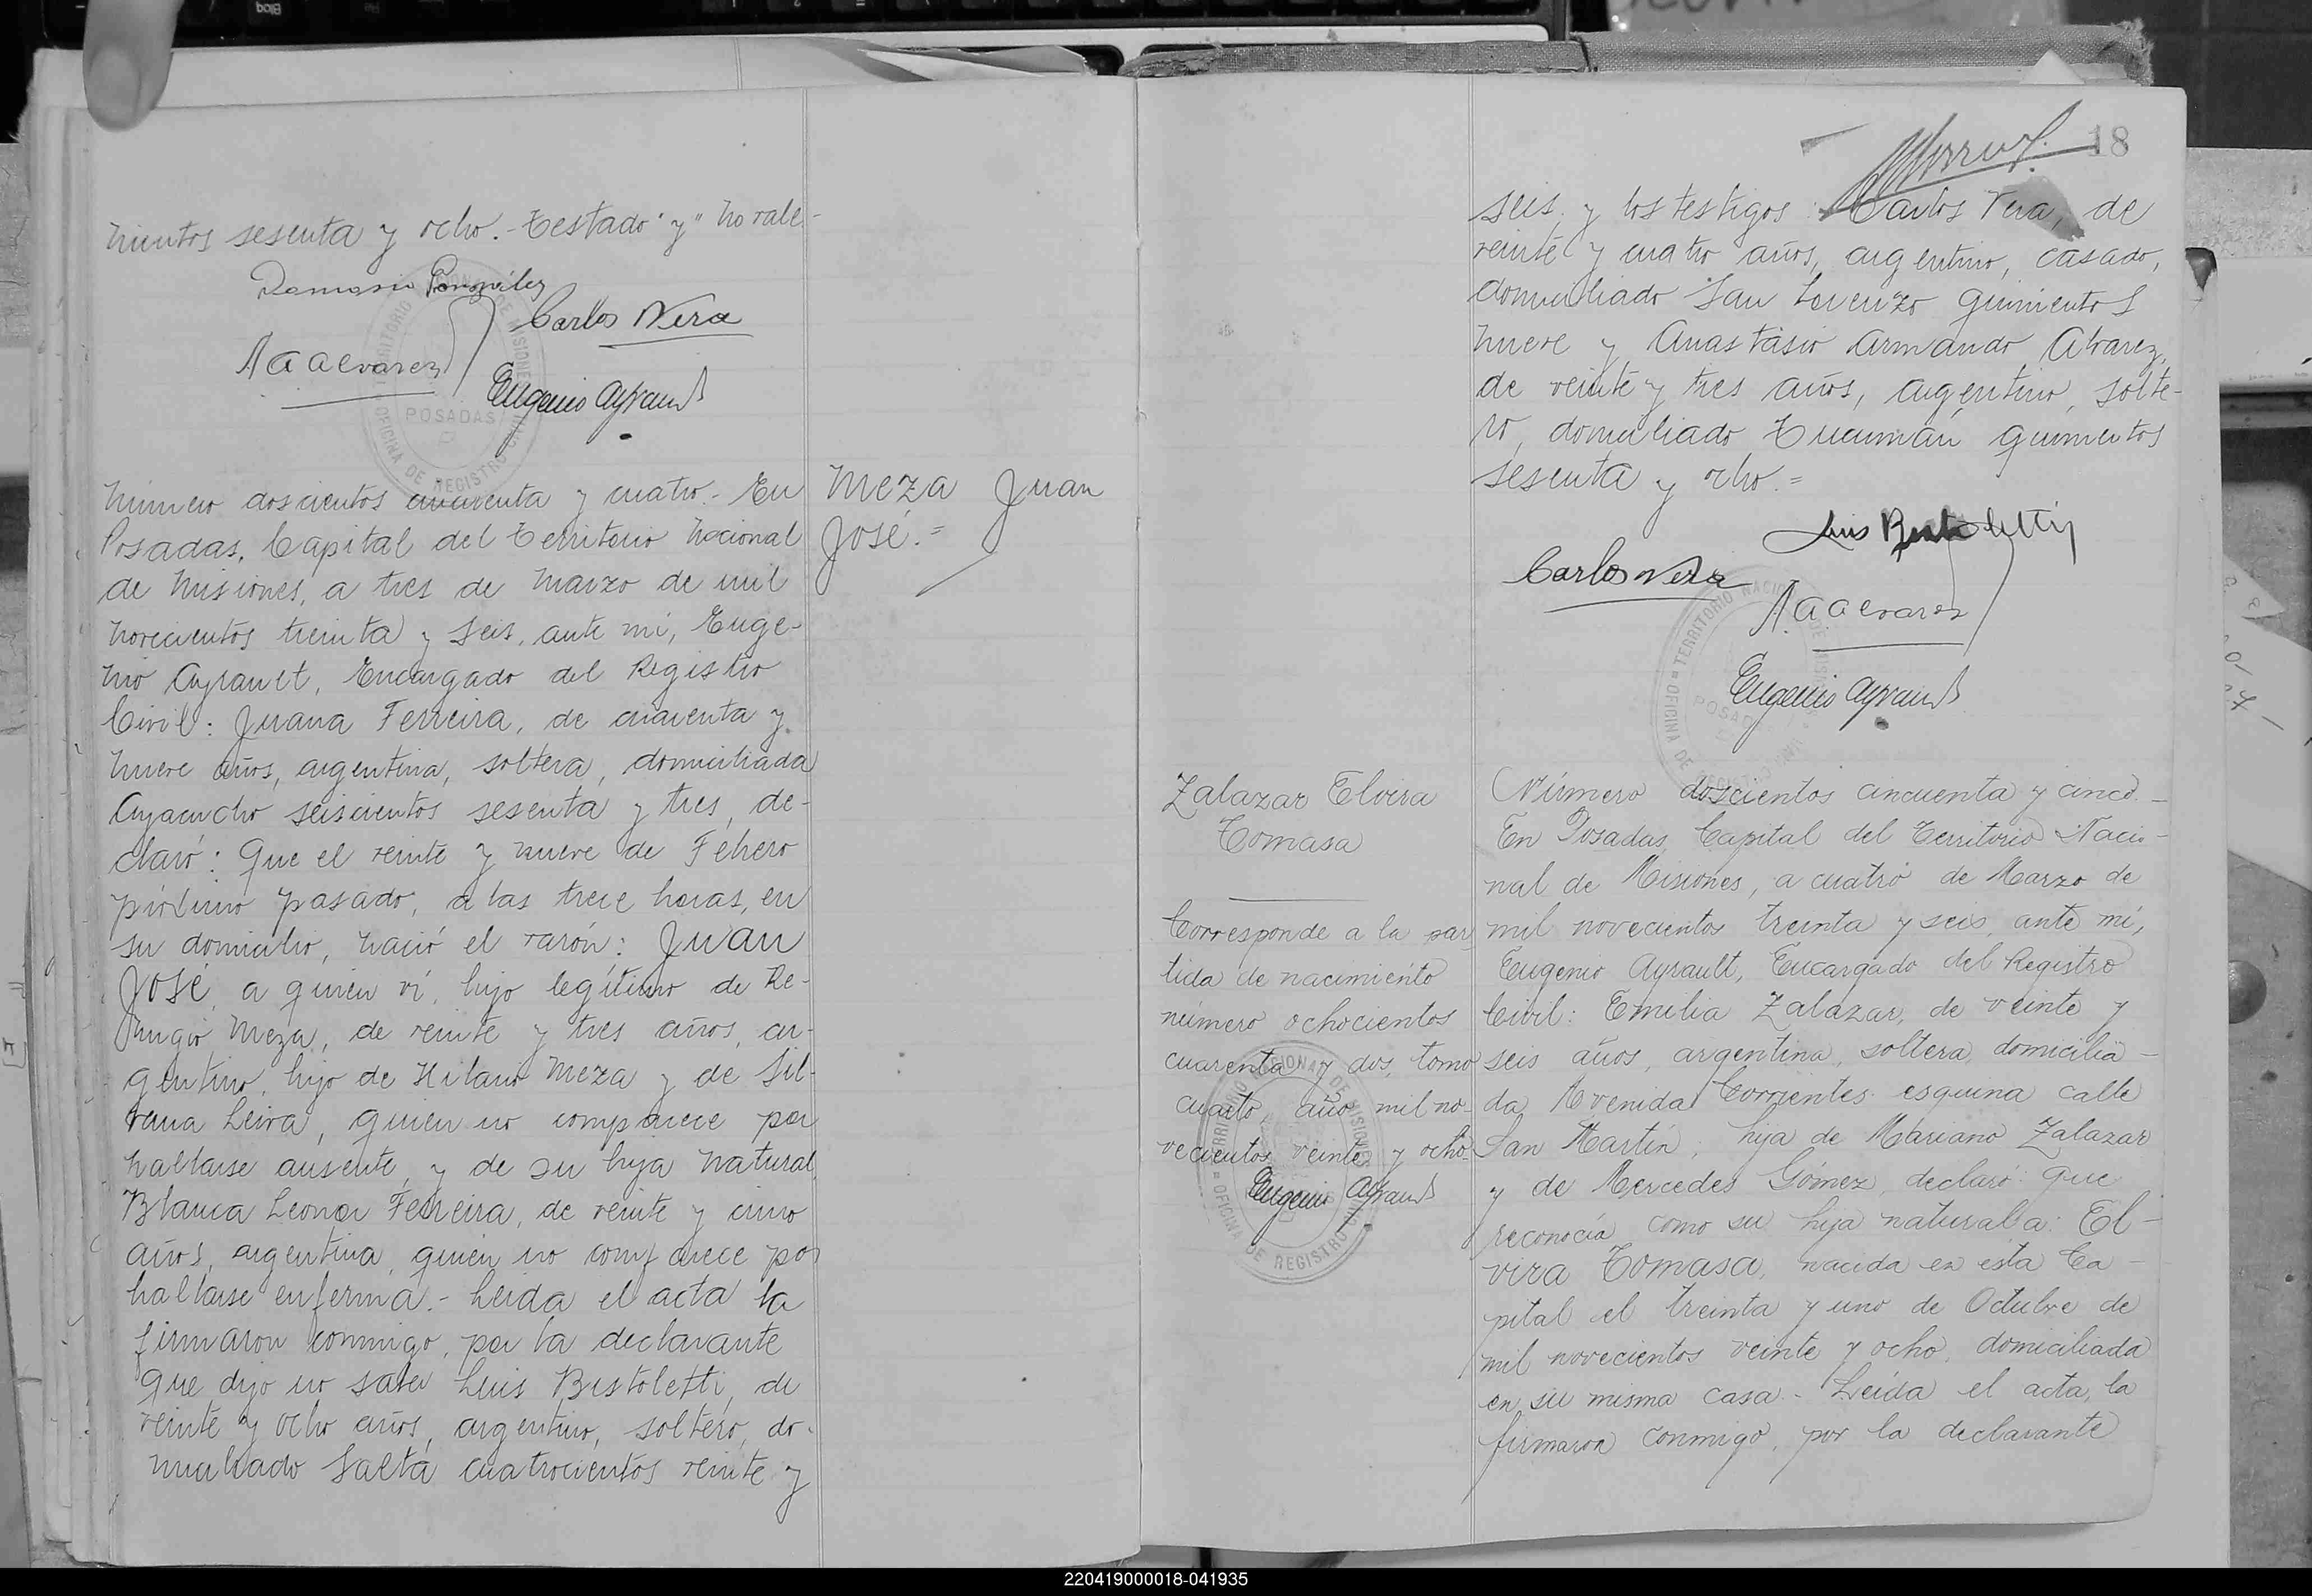 nientos sesenta y ocho.- Testado "y" no vale-
Carlos Vera
A A Alvarez
Eugenio Ayrault
POSADAS
Número doscientos cuarenta y cuatro.- En
Posadas, Capital del Territorio Nacional
de Misiones, a tres de Marzo de mil
novecientos treinta y seis, ante mí, Euge-
nio Ayrault, Encargado del Registro
Civil: Juana Ferreira, de cuarenta y
nueve años, argentina, soltera, domiciliada
Ayacucho seiscientos sesenta y tres, de-
claró: Que el veinte y nueve de Febrero
próximo pasado, a las trece horas, en
su domicilio, nació el varón: Juan
José, a quien ví, hijo legítimo de Re-
migio Meza, de veinte y tres años, ar-
gentino, hijo de Hilario Meza y de Sil-
vana Leiva, quien no comparece por
hallarse ausente, y de su hija natural
Blanca Leonor Ferreira, de veinte y cinco
años, argentina, quien no comparece por
hallarse enferma.- Leída el acta la
firmaron conmigo, por la declarante
que dijo no saber Luis Bertoletti, de
veinte y ocho años, argentino, soltero, do-
miciliado Salta cuatrocientos veinte y
Meza Juan
José.=
18
seis, y los testigos: Carlos Vera, de
veinte y cuatro años, argentino, casado,
domiciliado San Lorenzo quinientos
nueve y Anastasio Armando Alvarez,
de veinte y tres años, argentino, solte-
ro, domiciliado Tucumán quinientos
sesenta y ocho.=
Luis Bertoletti
Carlos Vera
A A Alvarez
Eugenio Ayrault
Zalazar Elvira
Tomasa
Corresponde a la par
tida de nacimiento
número ochocientos
cuarenta y dos, tomo
cuarto, año mil no-
vecientos veinte y ocho-
Eugenio Ayrault
Número doscientos cincuenta y cinco.-
En Posadas, Capital del Territorio Nacio-
nal de Misiones, a cuatro de Marzo de
mil novecientos treinta y seis, ante mí,
Eugenio Ayrault, Encargado del Registro
Civil: Emilia Zalazar, de veinte y
seis años, argentina, soltera, domicilia-
da Avenida Corrientes esquina calle
San Martín, hija de Mariano Zalazar
y de Mercedes Gómez, declaró: que
reconocía como su hija natural a: El-
vira Tomasa, nacida en esta Ca-
pital el treinta y uno de Octubre de
mil novecientos veinte y ocho, domiciliada
en su misma casa.- Leída el acta, la
firmaron conmigo, por la declarante
220419000018-041935